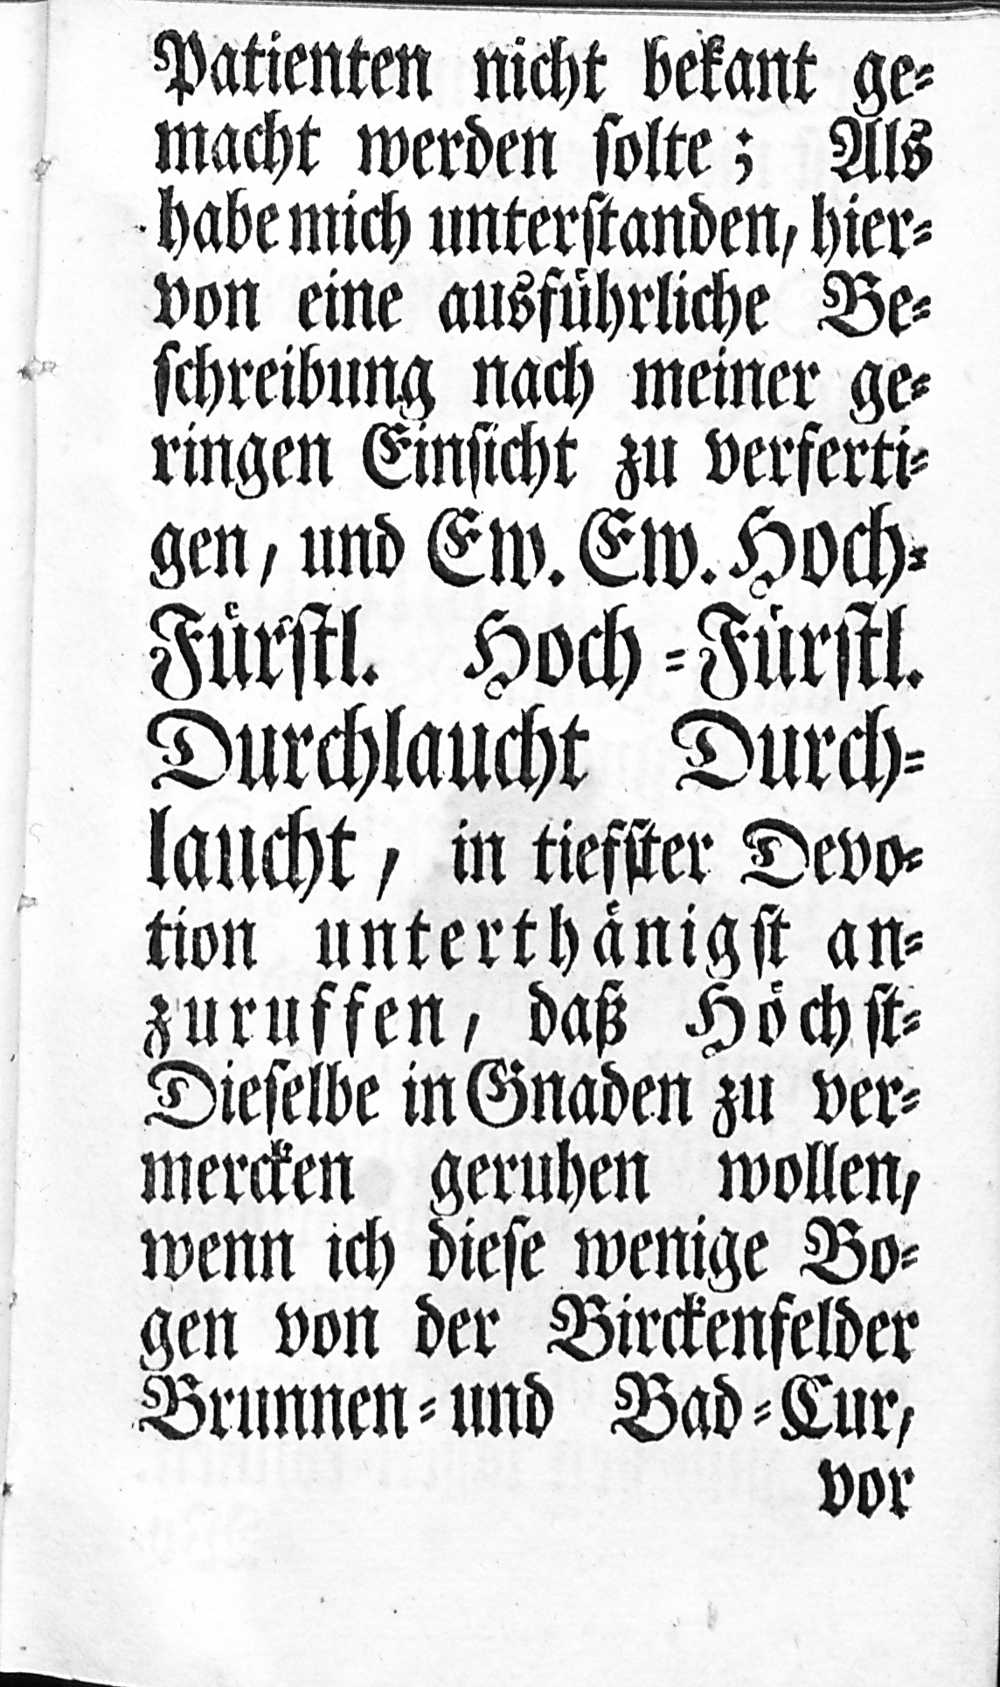 Patienten nicht bekant ge-
macht werden solte; Als
habe mich unterstanden, hier-
von eine ausführliche Be-
schreibung nach meiner ge-
ringen Einsicht zu verferti-
gen, und Ew. Ew. Hoch-
Fürstl. Hoch-Fürstl.
Durchlaucht Durch-
laucht, in tiefster Devo-
tion unterthänigst an-
zuruffen, daß Höchst-
Dieselbe in Gnaden zu ver-
mercken geruhen wollen,
wenn ich diese wenige Bo-
gen von der Birckenfelder
Brunnen-und Bad-Cur,
vor